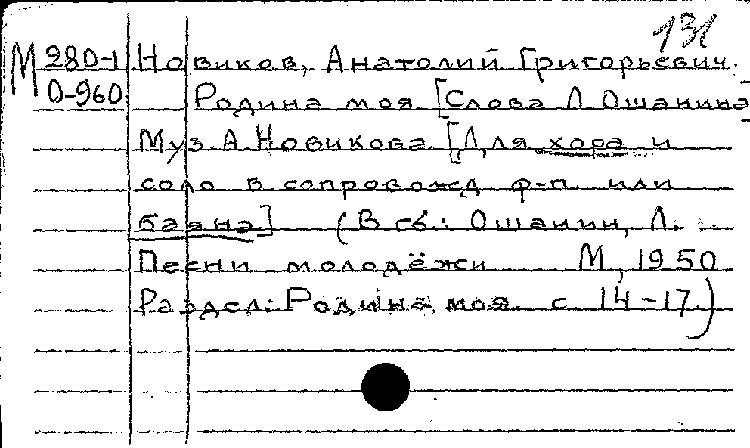 131
М 280-1 Новиков, Анатолий Григорьевич.
0-960 Родина моя [Слова Л Ошанина]
Муз А Новикова [Для хора и
соло в сопровожд ф-п. или
баяна] (В сб.: Ошанин, Л.
Песни молодёжи М, 1950
Раздел: Родина моя. с 14-17.)